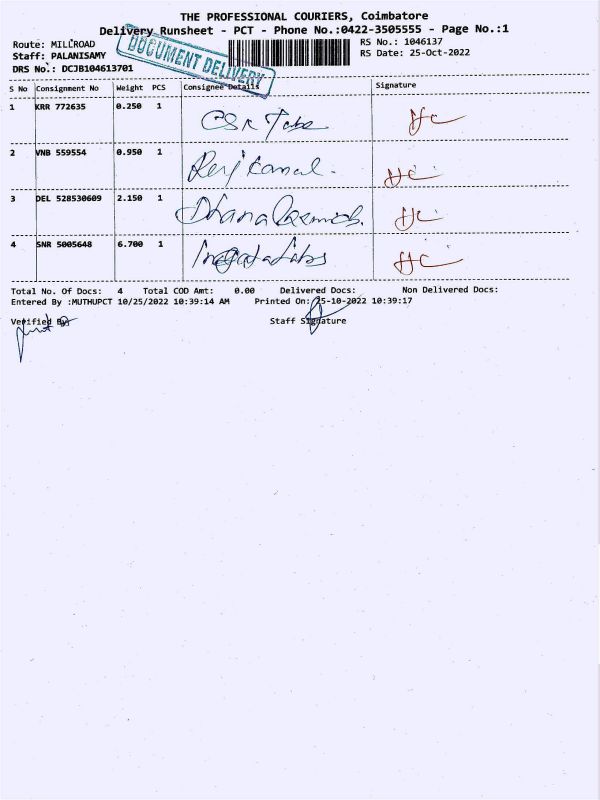 THE PROFESSIONAL COURIERS, Coimbatore
Delivery Runsheet - PCT - Phone No.:0422-3505555 - Page No.:1
Route: MILLROAD
RS No.: 1046137
Staff: PALANISAMY
RS Date: 25-Oct-2022
DRS No.: DCJB104613701
DOCUMENT DELIVERY
S No Consignment No Weight PCS Consignee Details Signature
1 KRR 772635 0.250 1 CSK
2 VNB 559554 0.950 1
3 DEL 528530609 2.150 1 Dhana
4 SNR 5005648 6.700 1
Total No. Of Docs: 4 Total COD Amt: 0.00 Delivered Docs: Non Delivered Docs:
Entered By :MUTHUPCT 10/25/2022 10:39:14 AM Printed On: 25-10-2022 10:39:17
Verified By Staff Signature